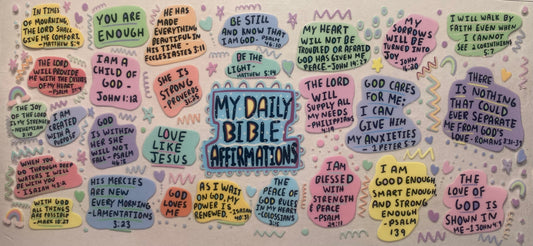 IN TIMES
OF MOURNING,
THE LORD SHALL
GIVE ME COMFORT.
- MATTHEW 5:4
YOU ARE
ENOUGH
HE HAS
MADE
EVERYTHING
BEAUTIFUL IN
HIS TIME -
ECCLESIASTES 3:11
BE STILL
AND KNOW THAT
I AM GOD - PSALM
46:10
MY HEART
WILL NOT
BE TROUBLED OR AFRAID
GOD HAS GIVEN ME
PEACE - JOHN 14:27
MY
SORROWS
WILL BE
TURNED INTO
JOY - JOHN
16:20
I WILL WALK BY
FAITH EVEN WHEN
I CANNOT
SEE 2 CORINTHIANS
5:7
THE LORD
WILL PROVIDE
ME WITH THE DESIRES
OF MY HEART
- PSALM 37:4
I AM A
CHILD OF
GOD -
JOHN 1:12
SHE IS
STRONG
PROVERBS
31:25
BE THE
LIGHT -
MATTHEW 5:14
MY DAILY
BIBLE
AFFIRMATIONS
THE LORD
WILL
SUPPLY ALL
MY NEEDS
- PHILIPPIANS
4:19
GOD CARES
FOR ME; I
CAN
GIVE HIM
MY ANXIETIES
- 1 PETER 5:7
THERE
IS NOTHING
THAT COULD
EVER SEPARATE
ME FROM GOD'S
LOVE - ROMANS 8:38-39
THE JOY OF
THE LORD
IS MY STRENGTH
- NEHEMIAH
I AM
CREATED
WITH A
PURPOSE
GOD
IS WITHIN
HER SHE
WILL NOT
FALL - PSALM
46:5
LOVE
LIKE
JESUS
WHEN YOU
GO THROUGH DEEP
WATERS I WILL
BE WITH YOU
- ISAIAH 43:2
HIS MERCIES
ARE NEW
EVERY MORNING
- LAMENTATIONS
3:23
GOD
LOVES
ME
AS I WAIT
ON GOD, MY
POWER IS
RENEWED. - ISAIAH
40:31
THE
PEACE OF
GOD RULES
IN MY HEART -
COLOSSIANS
3:15
I AM
BLESSED
WITH
STRENGTH
& PEACE
- PSALM
29:11
I AM
GOOD ENOUGH,
SMART ENOUGH
AND STRONG
ENOUGH
- PSALM
139
THE
LOVE OF
GOD IS
SHOWN IN
ME - 1 JOHN 4:9
WITH GOD
ALL THINGS
ARE POSSIBLE
- MARK 10:27